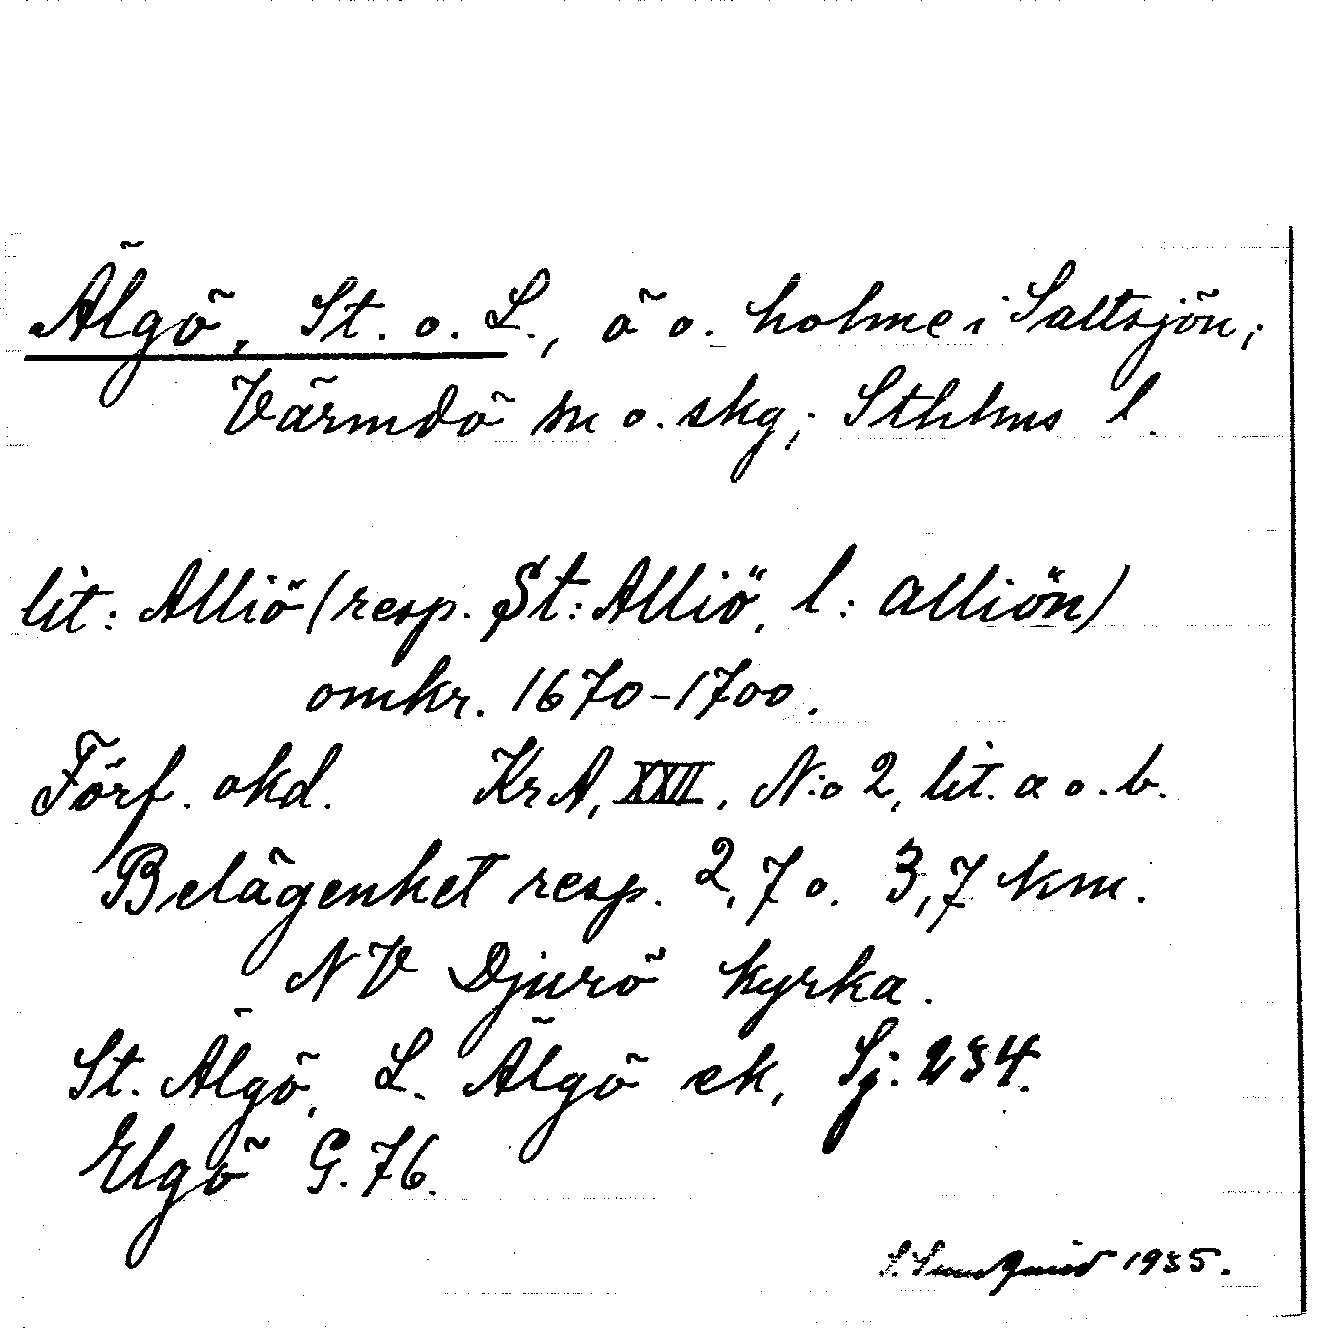 Älgö, St. o. L., ö o. holme i Saltsjön;
Värmdö sn o. skg; Sthlms l.
lit: Alliö (resp. St: Alliö, l: alliön)
omkr. 1670-1700.
Förf. okd. KrA, XXII, N:o 2, lit. a o. b.
Belägenhet resp. 2,7 o. 3,7 km.
NV Djurö kyrka.
St. Älgö, L. Älgö ek, Sj. 234.
Elgö G. 76.
1935.